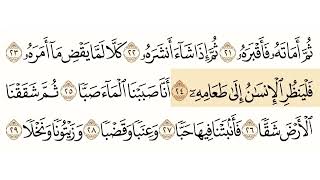 ثُمَّ أَمَاتَهُۥ فَأَقْبَرَهُۥ ٢١ ثُمَّ إِذَا شَآءَ أَنشَرَهُۥ ٢٢ كَلَّا لَمَّا يَقْضِ مَآ أَمَرَهُۥ ٢٣
فَلْيَنظُرِ ٱلْإِنسَٰنُ إِلَىٰ طَعَامِهِۦٓ ٢٤ أَنَّا صَبَبْنَا ٱلْمَآءَ صَبًّا ٢٥ ثُمَّ شَقَقْنَا
ٱلْأَرْضَ شَقًّا ٢٦ فَأَنۢبَتْنَا فِيهَا حَبًّا ٢٧ وَعِنَبًا وَقَضْبًا ٢٨ وَزَيْتُونًا وَنَخْلًا ٢٩